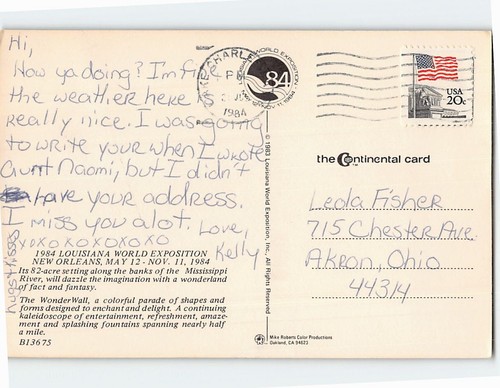 Hi,
How ya doing? I'm fine
the weather here is
really nice. I was going
to write your when I wrote
Aunt Naomi, but I didn't
have your address.
I miss you alot. Love,
XOXOXOXOXO Kelly
hugs + kisses
1984 LOUISIANA WORLD EXPOSITION
NEW ORLEANS, MAY 12 - NOV. 11, 1984
Its 82-acre setting along the banks of the Mississippi
River, will dazzle the imagination with a wonderland
of fact and fantasy.
The WonderWall, a colorful parade of shapes and
forms designed to enchant and delight. A continuing
kaleidoscope of entertainment, refreshment, amaze-
ment and splashing fountains spanning nearly half
a mile.
B13675
© 1983 Louisiana World Exposition, Inc. All Rights Reserved.
Mike Roberts Color Productions
Oakland, CA 94623
LAKE CHARLES
PM
1984
WORLD EXPOSITION
84
USA
20c
the Continental card
TM
Leola Fisher
715 Chester Ave.
Akron, Ohio
44314